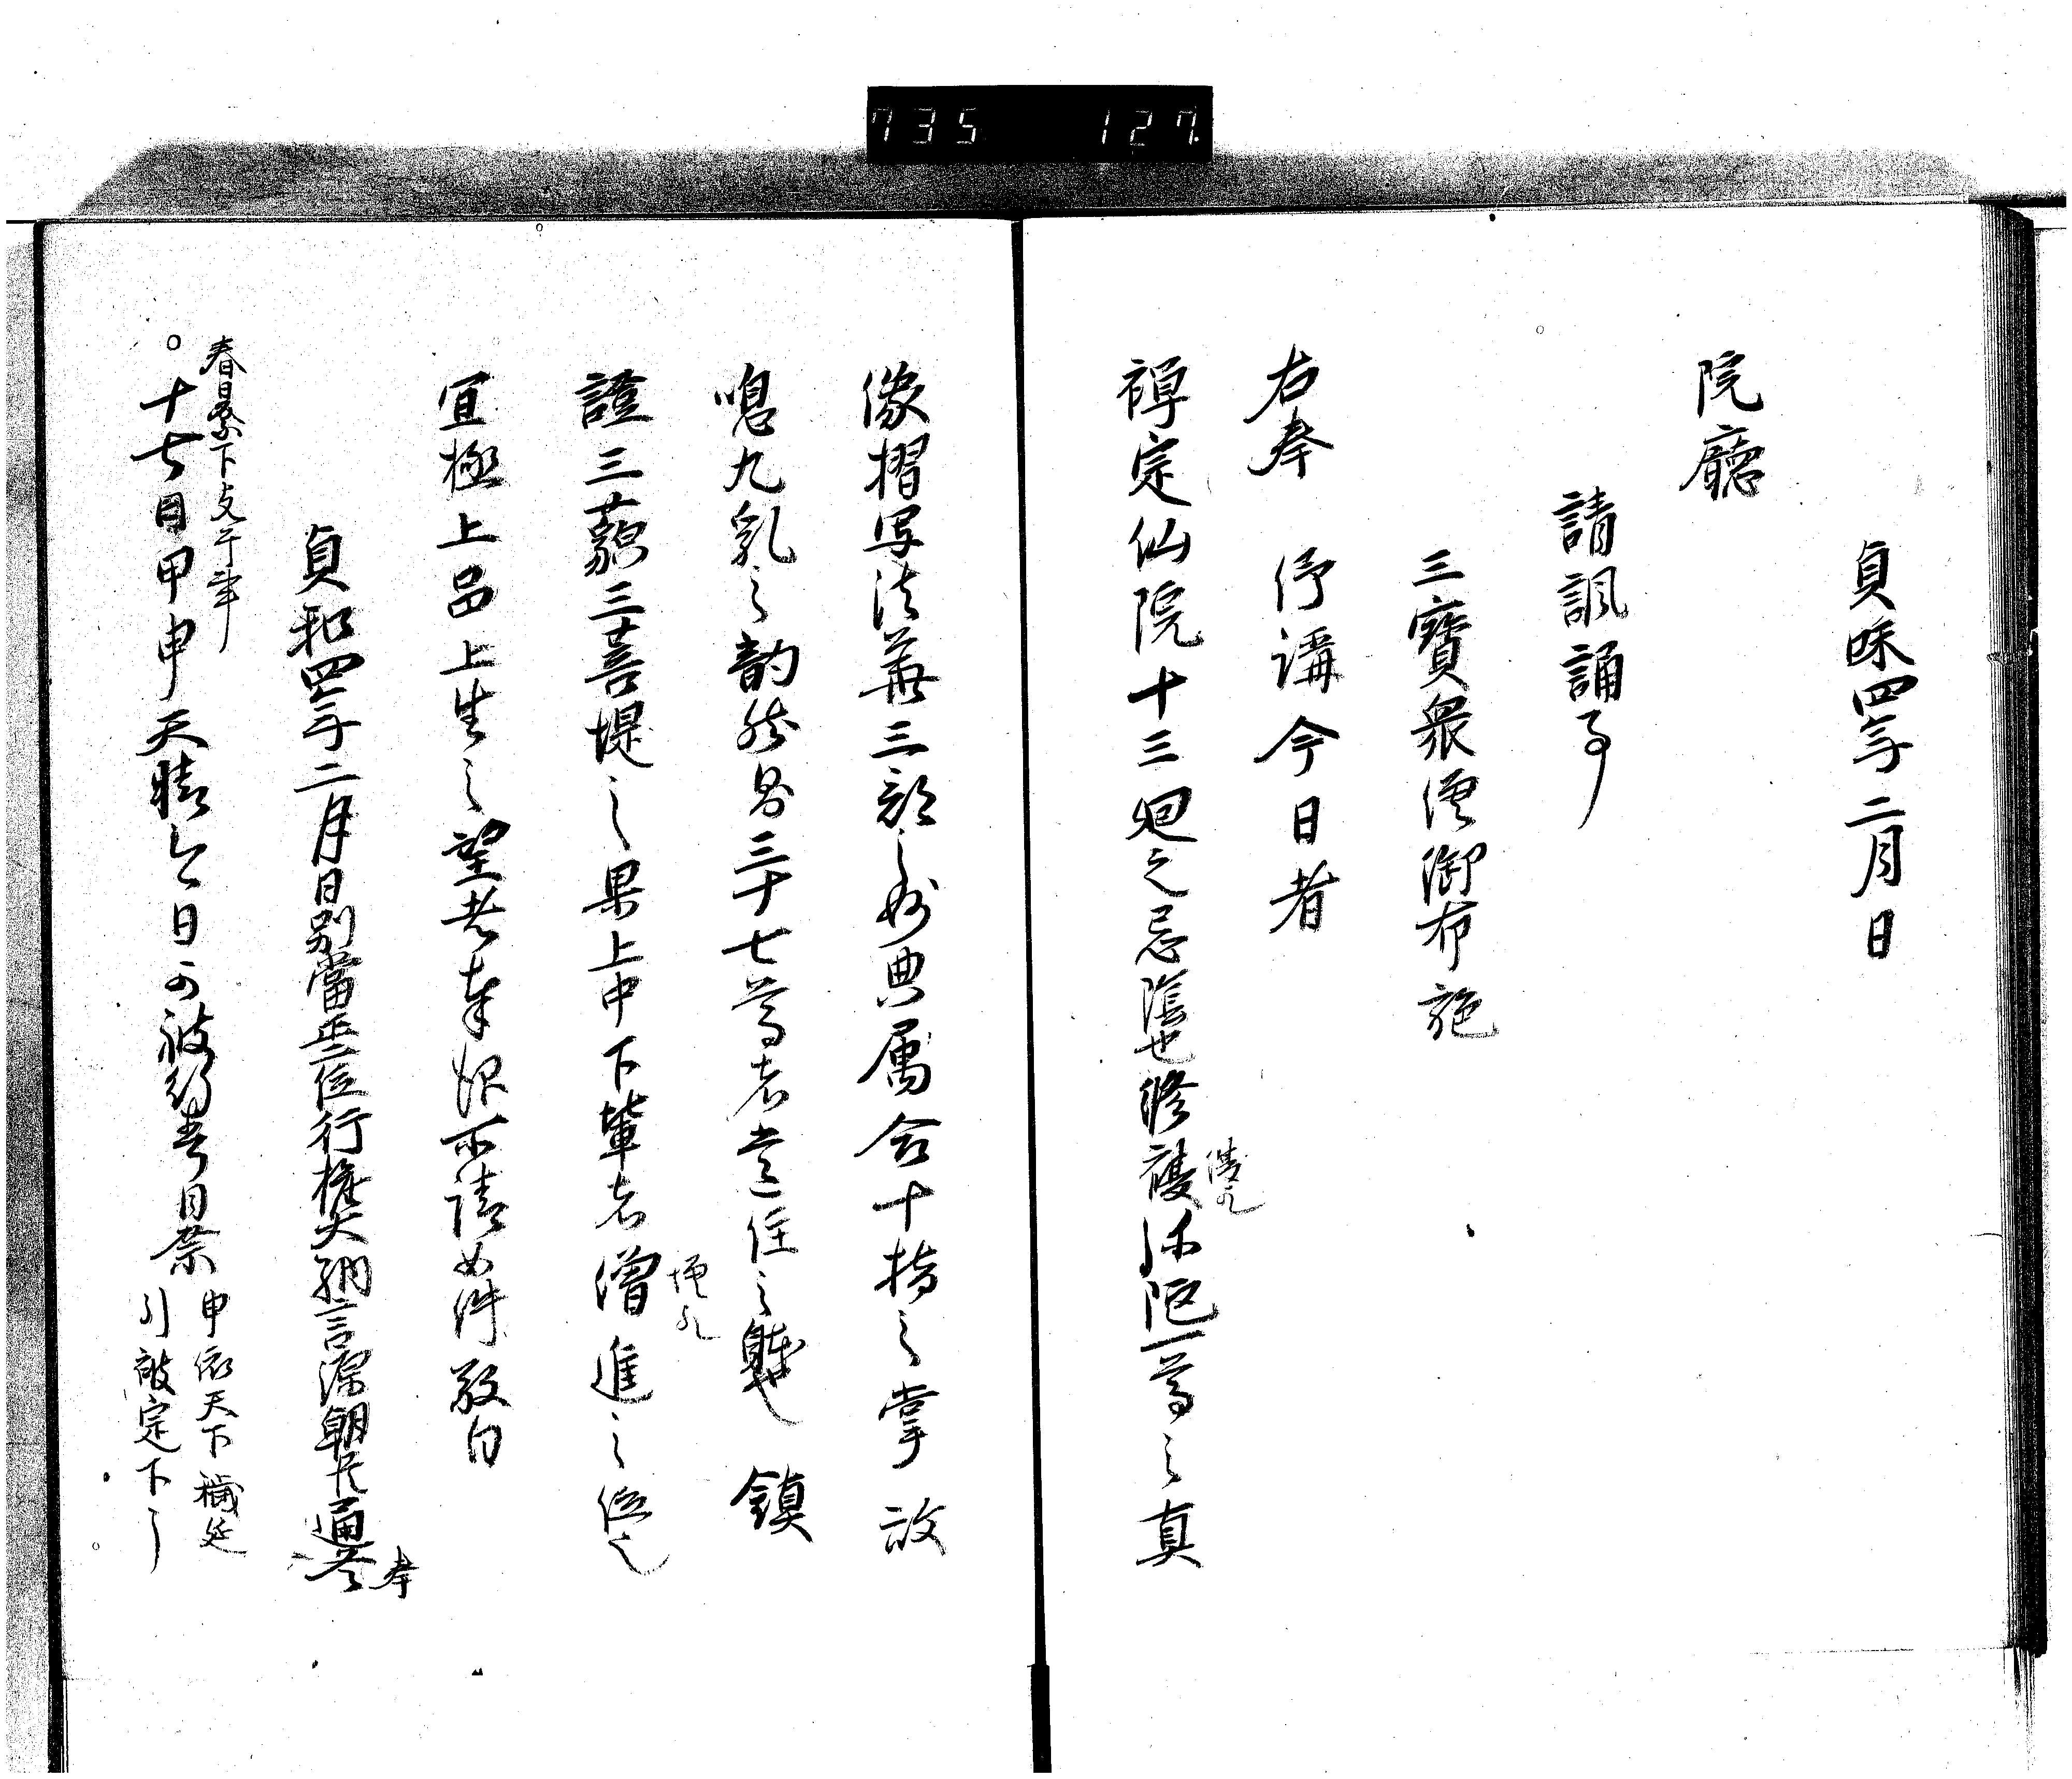 735 127
貞和四年二月日
院廳
請諷誦事
三寶衆僧御布施
右奉 仰偁今日者
禅定仙院十三廻之忌陰也修複弥陀一尊之真
像摺写法華三部之妙典属合十指之掌放
鳴九乳之韵然則三十七尊者
證三藐三菩提之果上中下輩者僧進之位
宜極上品上生之望者奉仰所請如件敬白
貞和四年二月日別當正二位行権大納言源朝臣通冬奉
春日祭下支干
十七日甲申天晴今日可被行春日祭申依天下穢延引被定下了